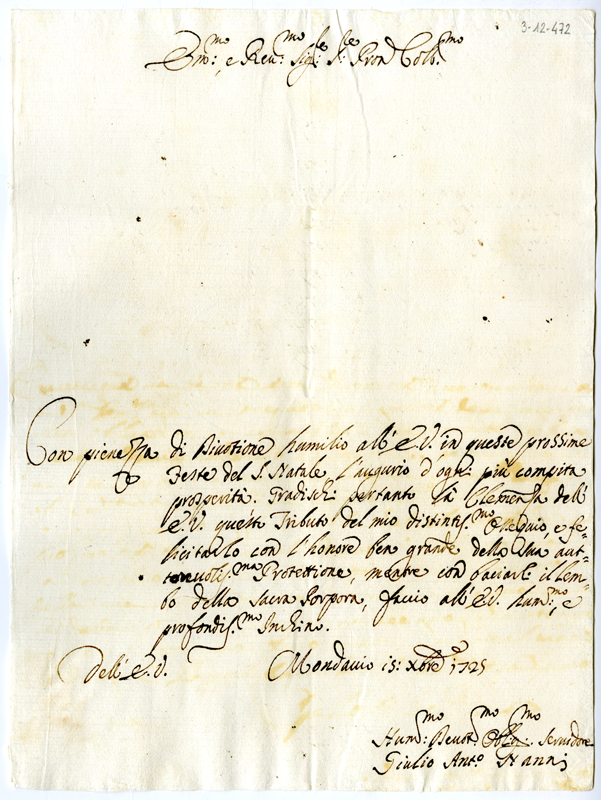 3-12-472
Em:mo e Reu:mo Sig:re Sr: Pron Colb.mo
Con pienezza di Diuotione humilio all' E.V. in queste prossime
Feste del S. Natale l'augurio d'ogni più compita
prosperità. Gradischi pertanto la Clemenza dell'
E.V. questo Tributo del mio distintis.mo Ossequio, e fe-
licitarlo con l'honore ben grande della sua aut-
toreuolis.ma Protettione, mentre con baciarli il lem-
bo della Sacra Porpora, faccio all' E.V. hum:mo, e
profondis.mo Inchino.
Dell' E.V. Mondauio 15: Xbre 1725
Hum:mo Deuot:mo Oblig:mo Seruidore
Giulio Ant.o